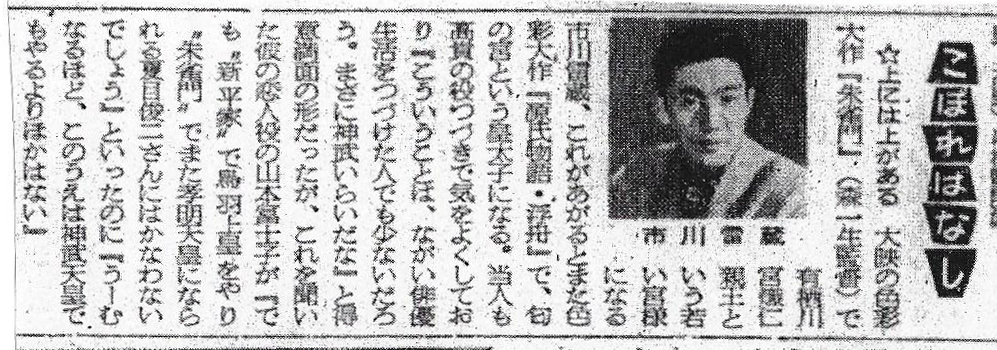 こぼれはなし
☆上には上がある　大映の色彩
大作『朱雀門』（森一生監督）で
市川雷蔵
有栖川
宮熾仁
親王と
いう若
い宮様
になる
市川雷蔵、これがあがるとまた色
彩大作『源氏物語・浮舟』で、匂
の宮という皇太子になる。当人も
高貴の役つづきで気をよくしてお
り『こういうことは、ながい俳優
生活をつづけた人でも少ないだろ
う。まさに神武いらいだな』と得
意満面の形だったが、これを聞い
た彼の恋人役の山本富士子が『で
も〝新平家〟で鳥羽上皇をやり
〝朱雀門〟でまた孝明天皇になら
れる夏目俊二さんにはかなわない
でしょう』といったのに『うーむ
なるほど、このうえは神武天皇で
もやるよりほかはない』